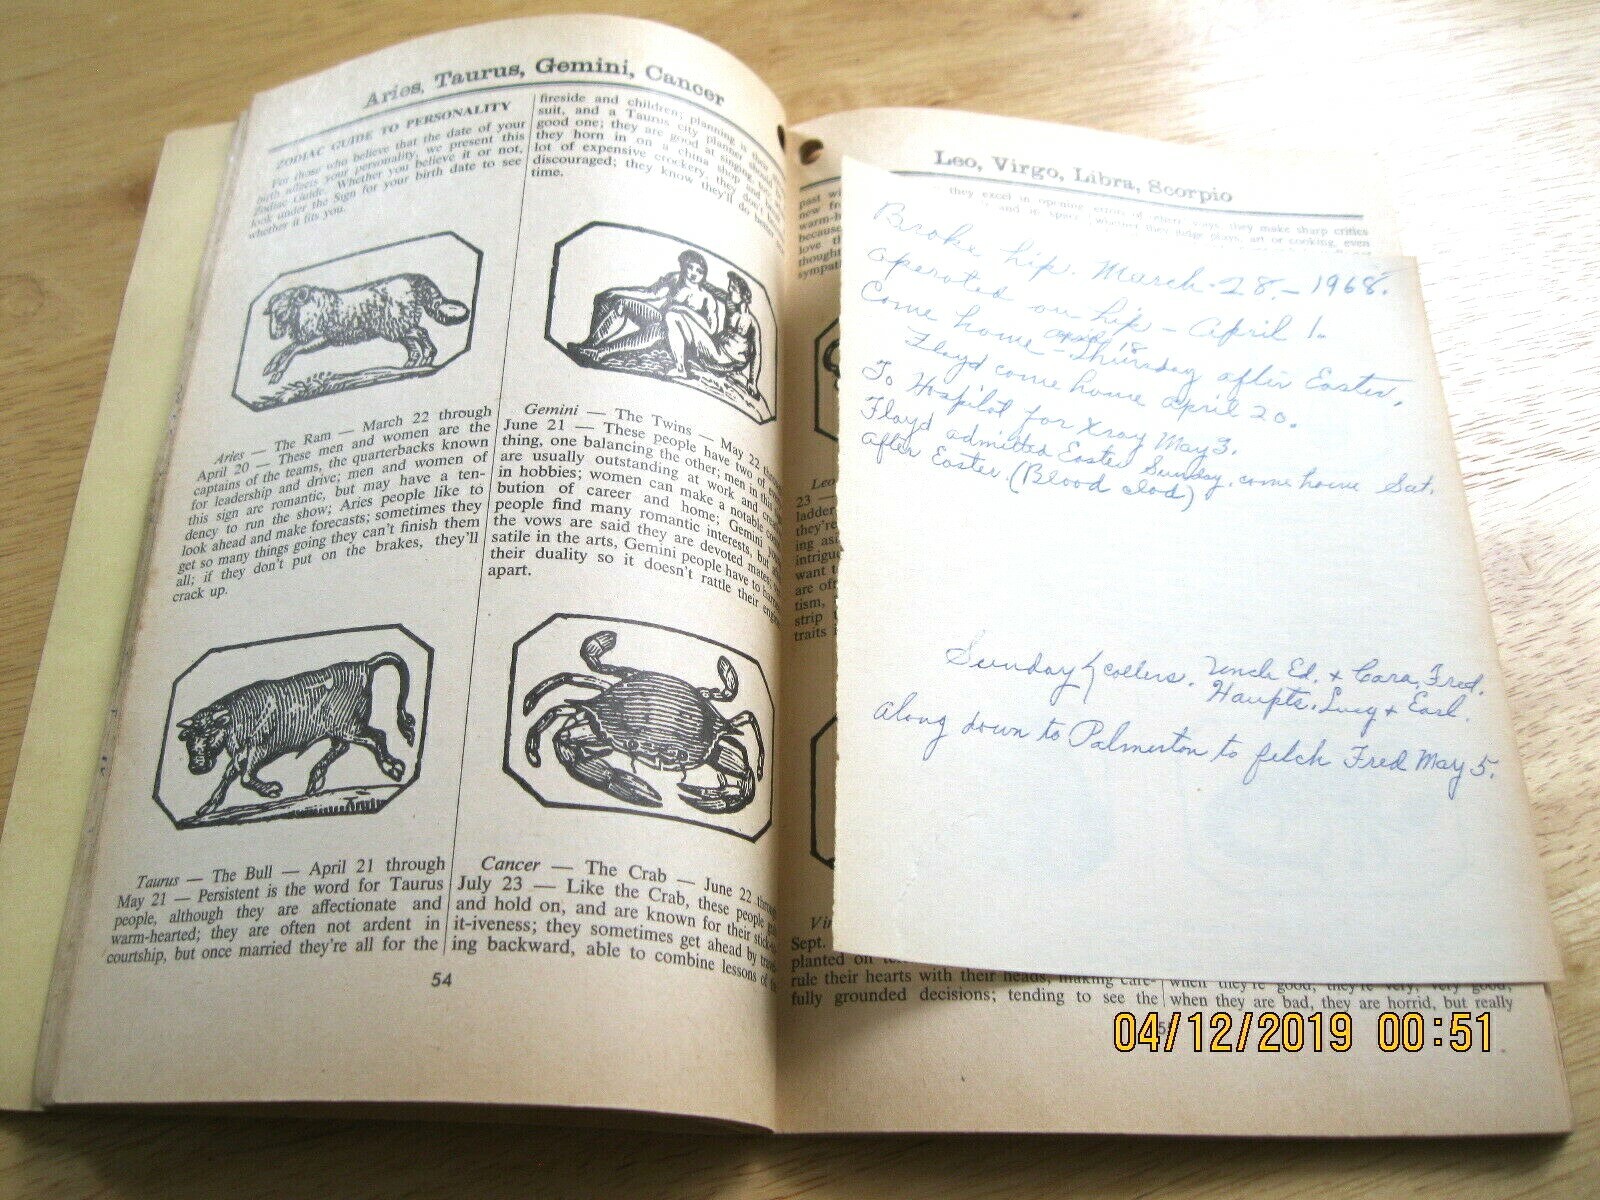 Aries, Taurus, Gemini, Cancer
ZODIAC GUIDE TO PERSONALITY
For those who believe that the date of your
birth affects your personality, we present this
Zodiac Guide. Whether you believe it or not,
look under the Sign for your birth date to see
whether it fits you.
Aries — The Ram — March 22 through
April 20 — These men and women are the
captains of the teams, the quarterbacks known
for leadership and drive; men and women of
this sign are romantic, but may have a ten-
dency to run the show; Aries people like to
look ahead and make forecasts; sometimes they
get so many things going they can't finish them
all; if they don't put on the brakes, they'll
crack up.
Taurus — The Bull — April 21 through
May 21 — Persistent is the word for Taurus
people, although they are affectionate and
warm-hearted; they are often not ardent in
courtship, but once married they're all for the
fireside and children; planning is their
suit, and a Taurus city planner is a
good one; they are good at singing
they horn in on a china shop and
lot of expensive crockery, they don't
discouraged; they know they'll do better
time.
Gemini — The Twins — May 22 through
June 21 — These people have two of every-
thing, one balancing the other; men in this
are usually outstanding at work and
in hobbies; women can make a notable contri-
bution of career and home; Gemini young
people find many romantic interests, but
the vows are said they are devoted mates;
satile in the arts, Gemini people have to
their duality so it doesn't rattle their engine
apart.
Cancer — The Crab — June 22 through
July 23 — Like the Crab, these people
and hold on, and are known for their stick-to-
it-iveness; they sometimes get ahead by
ing backward, able to combine lessons of the
54
Leo, Virgo, Libra, Scorpio
they excel in opening
they make sharp critics
whether they judge plays, art or cooking, even
past
new
warm-
because
love
though
sympat
Leo
23 —
ladder
they're
ing
intrigue
want to
are
tism,
strip
traits
Broke hip. March-28.-1968.
operated on hip - April 1.
Come home - Thursday after Easter.
april 18
Floyd come home april 20.
To Hospitol for xray May 3.
Floyd admitted Easter Sunday. come home Sat.
after Easter. (Blood clod)
Sunday callers. Uncle Ed. + Cara, Fred.
Haupts, Lucy + Earl.
Along down to Palmerton to fetch Fred May 5.
Sept.
planted on
rule their hearts with their heads, making care-
fully grounded decisions; tending to see the
when they're good, they're very, very good;
when they are bad, they are horrid, but really
04/12/2019 00:51